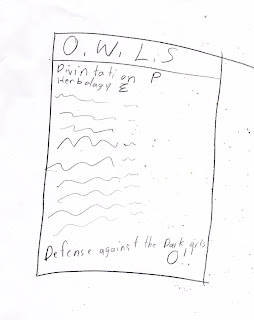 O.W.L.S
Divintation P
Herbolagy E
Defense against the Dark arts
O